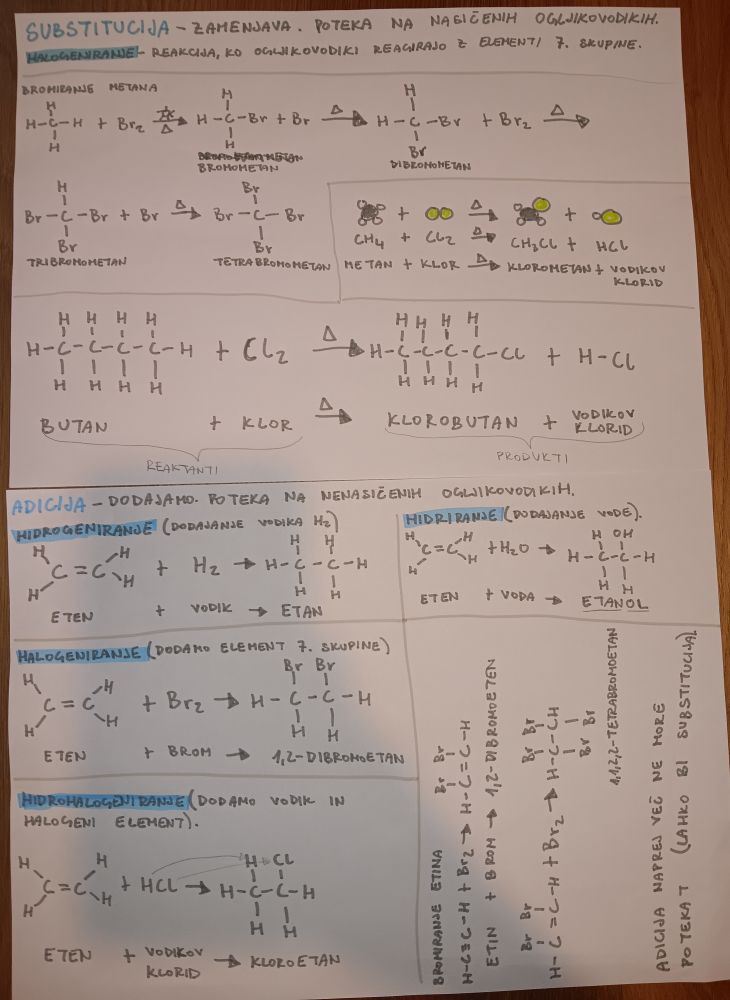 SUBSTITUCIJA – ZAMENJAVA. POTEKA NA NASIČENIH OGLJIKOVODIKIH.
HALOGENIRANJE – REAKCIJA, KO OGLJIKOVODIKI REAGIRAJO Z ELEMENTI 7. SKUPINE.
BROMIRANJE METANA
H
H
H
H-C-H + Br2 → H-C-Br + Br → H-C-Br + Br2 →
Δ Δ Δ
H
H
Br
BROMOMETAN
DIBROMOMETAN
H
Br
Br-C-Br + Br → Br-C-Br
Δ
Br
Br
TRIBROMOMETAN
TETRABROMOMETAN
+ → +
Δ
CH4 + Cl2 → CH3Cl + HCl
Δ
METAN + KLOR → KLOROMETAN + VODIKOV
Δ
KLORID
H H H H
H H H H
H-C-C-C-C-H + Cl2 → H-C-C-C-C-Cl + H-Cl
Δ
H H H H
H H H H
BUTAN + KLOR → KLOROBUTAN + VODIKOV
Δ
KLORID
REAKTANTI
PRODUKTI
ADICIJA – DODAJAMO. POTEKA NA NENASIČENIH OGLJIKOVODIKIH.
HIDROGENIRANJE (DODAJANJE VODIKA H2)
H H H H
C=C + H2 → H-C-C-H
H H H H
ETEN + VODIK → ETAN
HIDRIRANJE (DODAJANJE VODE).
H H H OH
C=C + H2O → H-C-C-H
H H H
ETEN + VODA → ETANOL
HALOGENIRANJE (DODAMO ELEMENT 7. SKUPINE)
H H Br Br
C=C + Br2 → H-C-C-H
H H H H
ETEN + BROM → 1,2-DIBROMOETAN
HIDROHALOGENIRANJE (DODAMO VODIK IN
HALOGENI ELEMENT).
H H H Cl
C=C + HCl → H-C-C-H
H H H H
ETEN + VODIKOV → KLOROETAN
KLORID
BROMIRANJE ETINA
Br Br
H-C≡C-H + Br2 → H-C=C-H
ETIN + BROM → 1,2-DIBROMOETEN
Br Br Br Br
H-C=C-H + Br2 → H-C-CH
Br Br
1,1,2,2-TETRABROMOETAN
ADICIJA NAPREJ VEČ NE MORE
POTEKAT (LAHKO BI SUBSTITUCIJA).